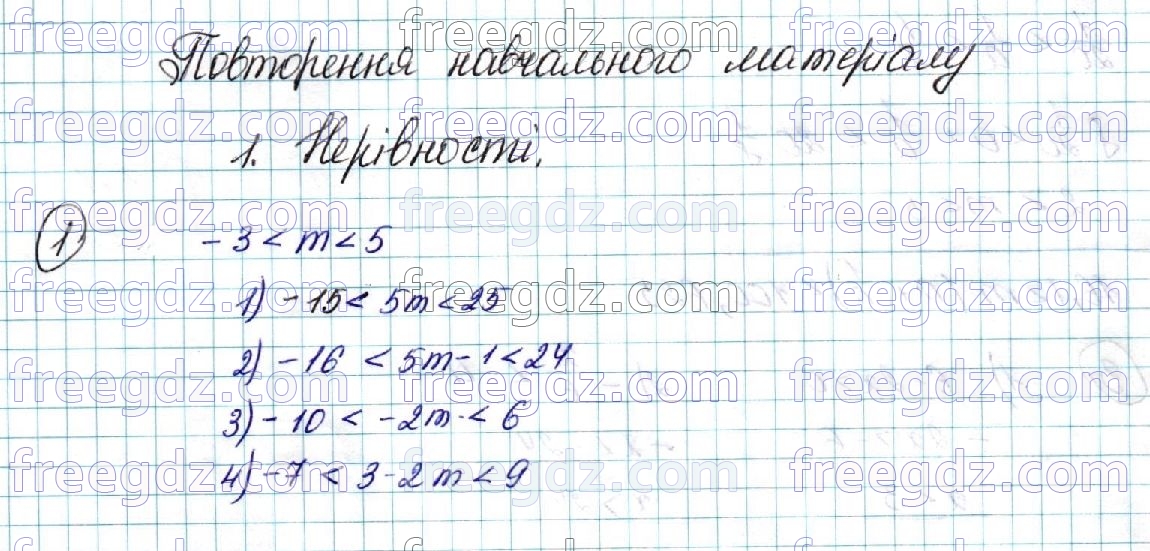 Повторення навчального матеріалу
1. Нерівності.
1 -3 < m < 5
1) -15 < 5m < 25
2) -16 < 5m - 1 < 24
3) -10 < -2m < 6
4) -7 < 3 - 2m < 9
freegdz.com freegdz.com freegdz.com